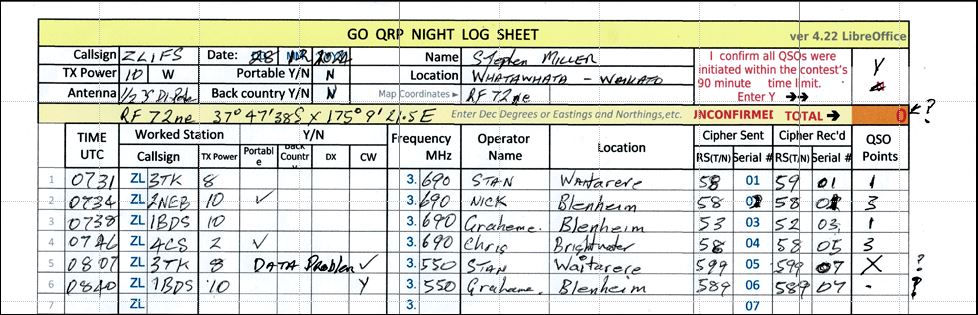 GO QRP NIGHT LOG SHEET ver 4.22 LibreOffice
Callsign ZL1FS Date: Name Stephen MILLER I confirm all QSOs were
TX Power 10 W Portable Y/N N Location WHATAWHATA - WAIKATO initiated within the contest's Y
Antenna Back country Y/N N Map Coordinates ► RF 72ne 90 minute time limit.
Enter Y
RF 72ne 37° 47'38S X 175° 9' 21.5E Enter Dec Degrees or Eastings and Northings,etc. UNCONFIRMED TOTAL 0 ?
TIME UTC Worked Station Y/N Frequency MHz Operator Name Location Cipher Sent Cipher Rec'd QSO Points
Callsign TX Power Portable Back Country DX CW RS(T/N) Serial # RS(T/N) Serial #
1 0731 ZL 3TK 8 3. 690 STAN Waitarere 58 01 59 01 1
2 0734 ZL 2NEB 10 ✓ 3. 690 NICK Blenheim 58 58 3
3 0738 ZL 1BDS 10 3. 690 Grahame. Blenheim 53 03 52 03 1
4 0746 ZL 4CS 2 ✓ 3. 690 Chris Brightwater 58 04 58 05 3
5 0807 ZL 3TK 8 DATA Problem ✓ 3. 550 STAN Waitarere 599 05 599 07 X ?
6 0840 ZL 1BDS 10 Y 3. 550 Grahame. Blenheim 589 06 589 07 - ?
7 ZL 3. 07